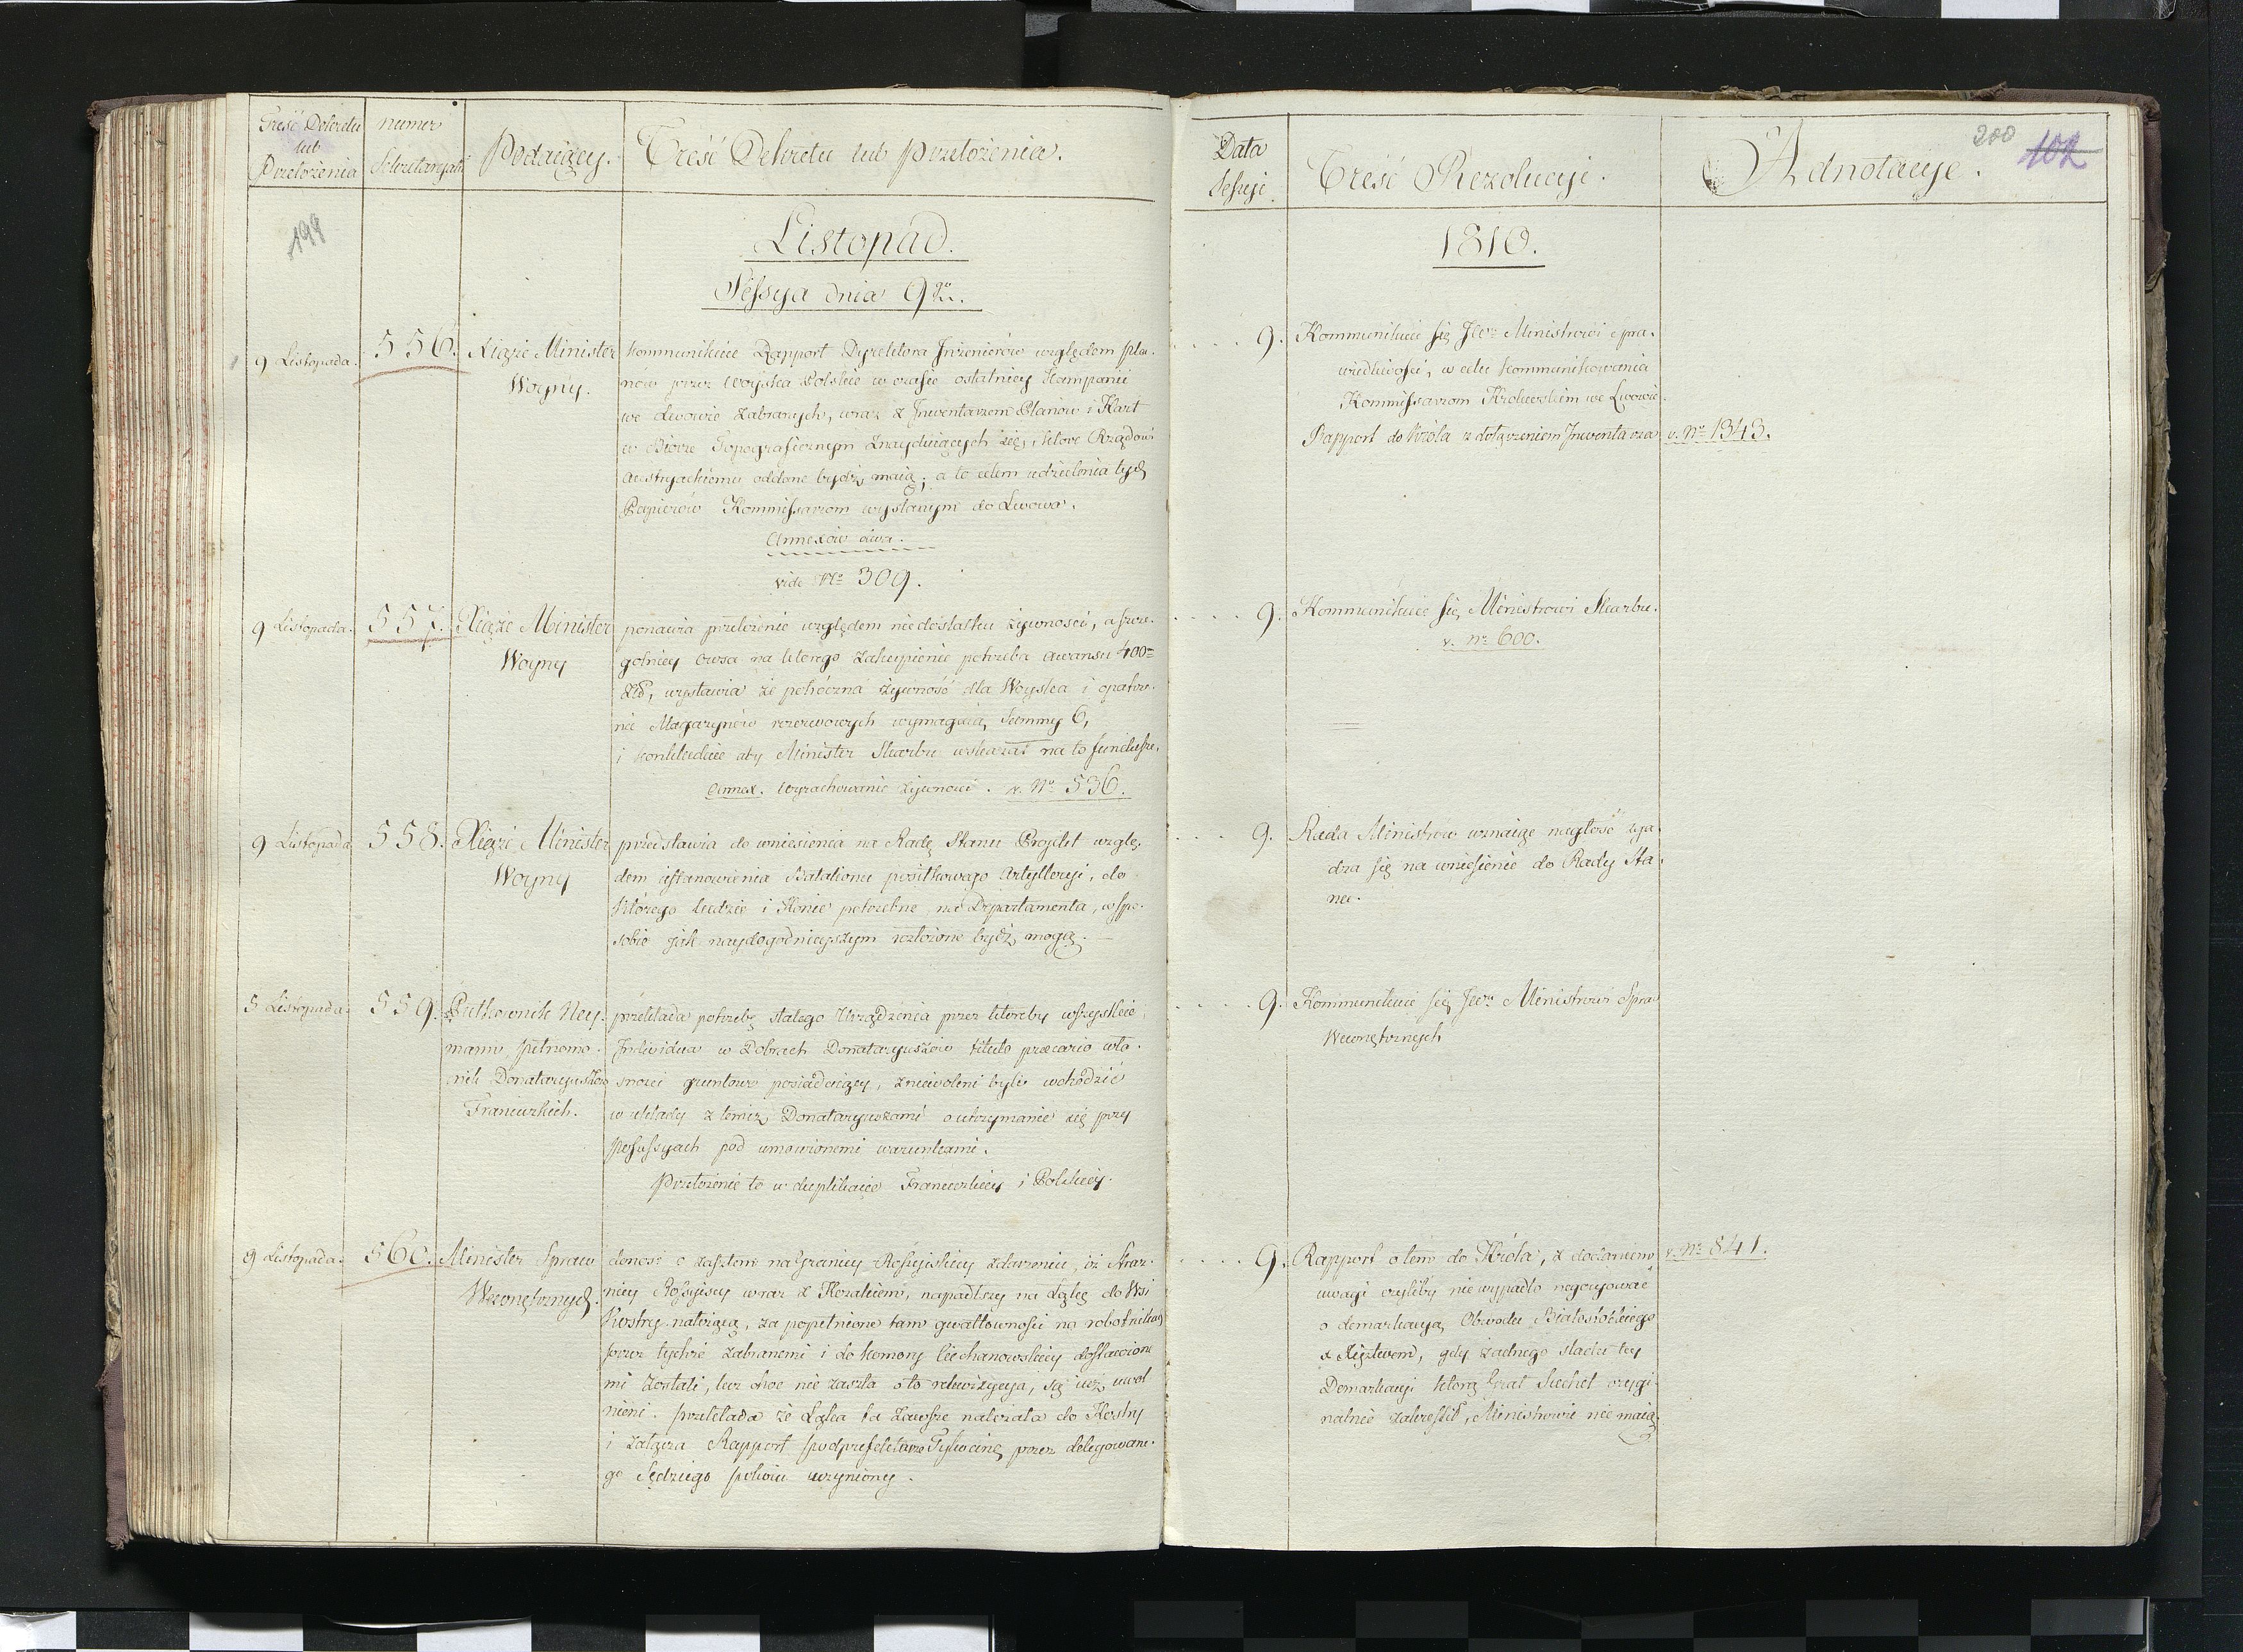 Treść Dekretu
lub
Przełożenia
numer
Sekretaryatu
Podaiący.
Treść Dekretu lub przełożenia.
199
Listopad.
Sessya dnia 9go.
9 Listopada.
556.
Xiąże Minister
Woyny.
kommunikuie Rapport Dyrektora Inżenierów względem pla-
nów przez Woyska Polskie w czasie ostatniey Kampanii
we Lwowie zabranych, wraz z Inwentarzem Planów i Kart
w Biórze Topograficznym znayduiących się, które Rządowi
Austryackiemu oddane bydź maią; a to celem udzielenia tych
Papierów Kommissarzom wysłanym do Lwowa.
Annexów dwa.
vide No 309.
9 Listopada.
557.
Xiąże Minister
Woyny
ponawia przełożenie względem niedostatku żywności, a szcze-
gólniey Owsa na którego zakupienie potrzeba awansu 400=
Zło, wystawia że potóczna żywność dla Woyska i opatrze-
nie Magazynów rezerwowych wymagaią Summy 6,
i konkluduie aby Minister Skarbu wskazał na to fundusze.
Annex. Wyrachowanie żywności. v. No 536.
9 Listopada
558.
Xiąże Minister
Woyny
przedstawia do wniesienia na Radę Stanu Proyekt wzglę-
dem ustanowienia Batalionu posiłkowego Artylleryi, do
którego ludzie i Konie potrzebne, na Departamenta, w spo-
sobie jak naydogodnieyszym rozłożone bydź mogą.
5 Listopada.
559.
Pułkownik Ney-
mann, pełnomo-
nik Donataryuszów
Francuzkich.
przekłada potrzebę stałego Urządzenia przez któreby wszystkie
Individua w Dobrach Donataryuszów titulo precario wła-
sności gruntowe posiadaiący, zniewoleni byli wchodzić
w układy z temiż Donataryuszami o utrzymanie się przy
possessyach pod umówionemi warunkami.
Przełożenie to w duplikacie Francuzkiey i Polskiey.
9 Listopada.
560.
Minister Spraw
Wewnętrznych.
donosi o zaszłem na Granicy Rossyiskiey zdarzeniu, iż Straż-
nicy Rossyiscy wraz z Kozakiem, napadłszy na Łąkę do Wsi
Kostry należącą, za popełnione tam gwałtowności na robotnikach
przez tychże zabranemi i do komory Ciechanowskiey dostawione
mi zostali, lecz choc nie zaszła o to rekwizycya, są iuż uwol
nieni. przekłada że Łąka ta zawsze należała do Kostry
i załącza Rapport podprefektura Tykocińs. przez delegowane-
go Sędziego pokoiu uczyniony.
Data
Sessyi.
Treść Rezolucyi.
Adnotacye.
200
102
1810.
9.
Kommunikuie się JW. Ministrowi spra-
wiedliwości, w celu kommunikowania
Kommissarzom Królewskim we Lwowie.
Rapport do Króla z dołączeniem Inwentarza
v. No 1343.
9.
Kommunikuie się Ministrowi Skarbu.
v. No 600.
9.
Rada Ministrów uznaiąc nagłość zga-
dza się na wniesienie do Rady Sta-
nu.
9.
Kommunikuie się JW. Ministrowi Spra
Wewnętrznych
9.
Rapport o tem do Króla, z dodaniem
uwagi czyliby nie wypadło negocyować
o demarkacyą Obwodu Białostockiego
z Xięztwem, gdy żadnego sladu tey
Demarkacyi którą Grał Suchet orygi-
nalnie zakreślił, Ministrowie nie maią.
v. No 841.